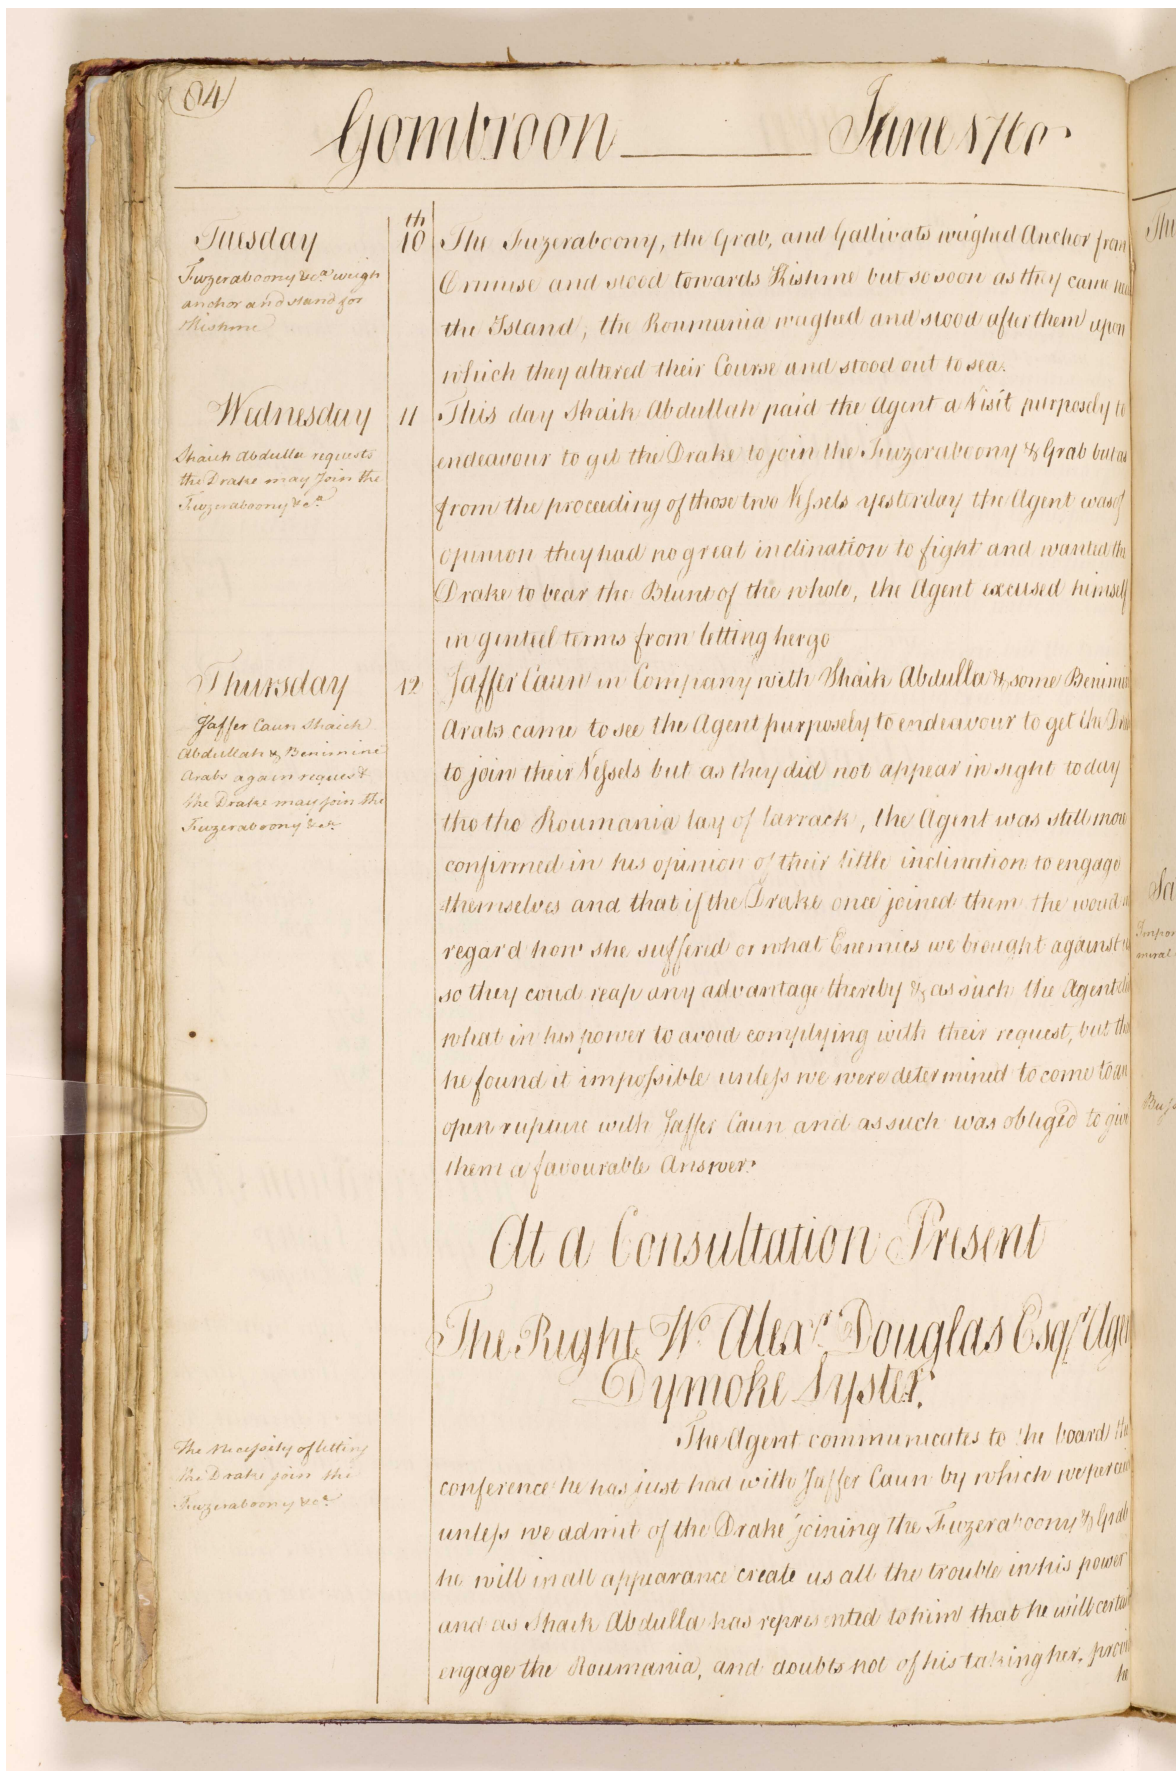 84
Gombroon June 1760
Tuesday
Fuzeraboony &ca. weigh
anchor and stand for
Kishme
10th The Fuzeraboony, the Grab, and Gallivats weighed Anchor from
Ormuse and stood towards Kishme but so soon as they came
the Island, the Roumania weighed and stood after them upon
which they altered their Course and stood out to sea.
Wednesday
Shaick Abdulla requests
the Drake may Join the
Fuzeraboony &ca.
11 This day Shaik Abdullah paid the Agent a Visit purposely to
endeavour to get the Drake to join the Fuzeraboony & Grab but as
from the proceeding of those two Vessels yesterday the Agent was of
opinion they had no great inclination to fight and wanted the
Drake to bear the Blunt of the whole, the Agent excused himself
in genteel terms from letting her go
Thursday
Jaffer Caun Shaick
Abdullah & Benimine
Arabs again request
the Drake may join the
Fuzeraboony &ca.
12 Jaffer Caun in Company with Shaik Abdulla & some
Arabs came to see the Agent purposely to endeavour to get the
to join their Vessels but as they did not appear in sight today
tho the Roumania lay of Larrack, the Agent was still more
confirmed in his opinion of their little inclination to engage
themselves and that if the Drake once joined them the woud
regard how she suffered or what Enemies we brought against
so they coud reap any advantage thereby & as such the Agent
what in his power to avoid complying with their request, but
he found it impossible unless we were determined to come to an
open rupture with Jaffer Caun and as such was obliged to give
them a favourable Answer.
At a Consultation Present
The Right Wo. Alexr. Douglas Esqr.
Dymoke Lyster.
The necessity of letting
the Drake join the
Fuzeraboony &ca.
The Agent communicates to the board the
conference he has just had with Jaffer Caun by which we
unless we admit of the Drake joining the Fuzeraboony & Grab
he will in all appearance create us all the trouble in his power
and as Shaik Abdulla has represented to him that he will
engage the Roumania, and doubts not of his taking her,